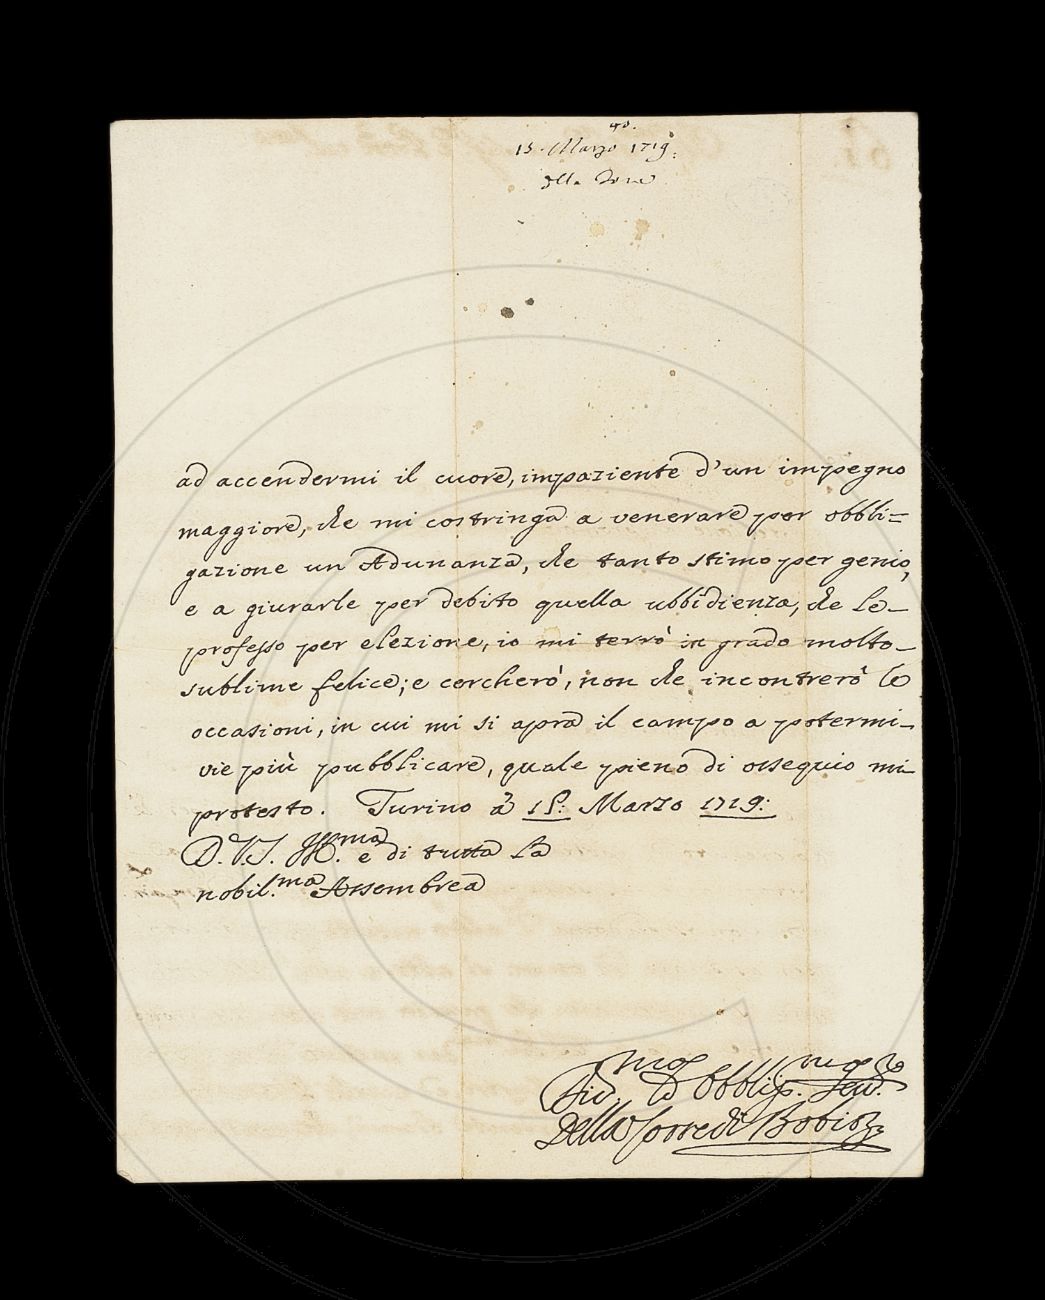 15. Marzo 1719.
ad accendermi il cuore, impaziente d'un impegno
maggiore, che mi costringa a venerare per obbli=
gazione un Adunanza, che tanto stimo per genio,
e a giurarle per debito quella ubbidienza, che le
professo per elezione, io mi terrò in grado molto
sublime felice; e cercherò, non che incontrerò le
occasioni, in cui mi si apra il campo a potermi
vie più pubblicare, quale pieno di ossequio mi
protesto. Turino a' 15: Marzo 1719:
D. V. S. Ill.ma e di tutta la
nobil.ma Assemblea
Obblig.mo
Della Torre di Bobio